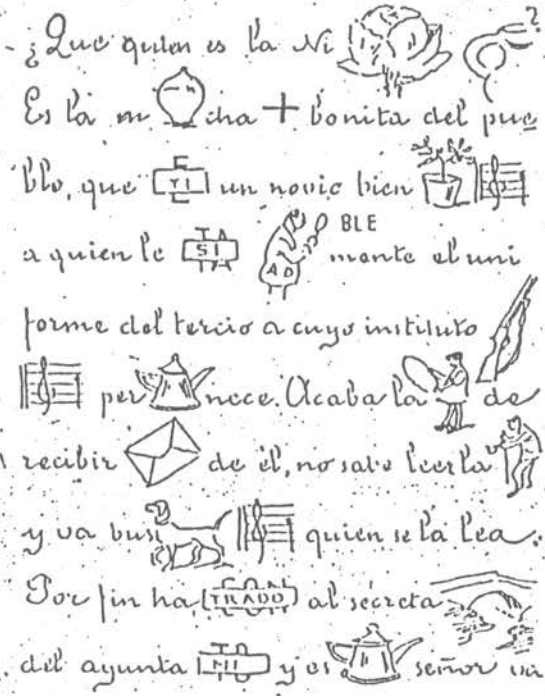 - ¿Que quien es la Ni ?
Es la m cha + bonita del pue
blo, que TI E un novio bien
a quien le SI TA AD BLE mente el uni
forme del tercio a cuyo instituto
per nece. Acaba la de
recibir de él, no sabe leerla
y va bus quien se la lea.
Por fin ha CON TRADO al secreta
del ayunta MI TO y es señor va